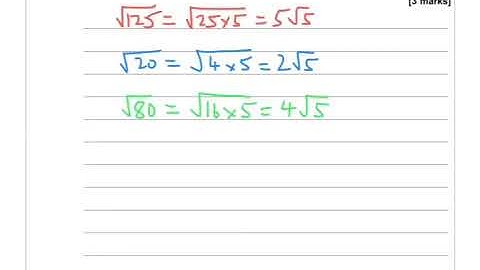 [3 marks]
√125 = √25×5 = 5√5
√20 = √4×5 = 2√5
√80 = √16×5 = 4√5